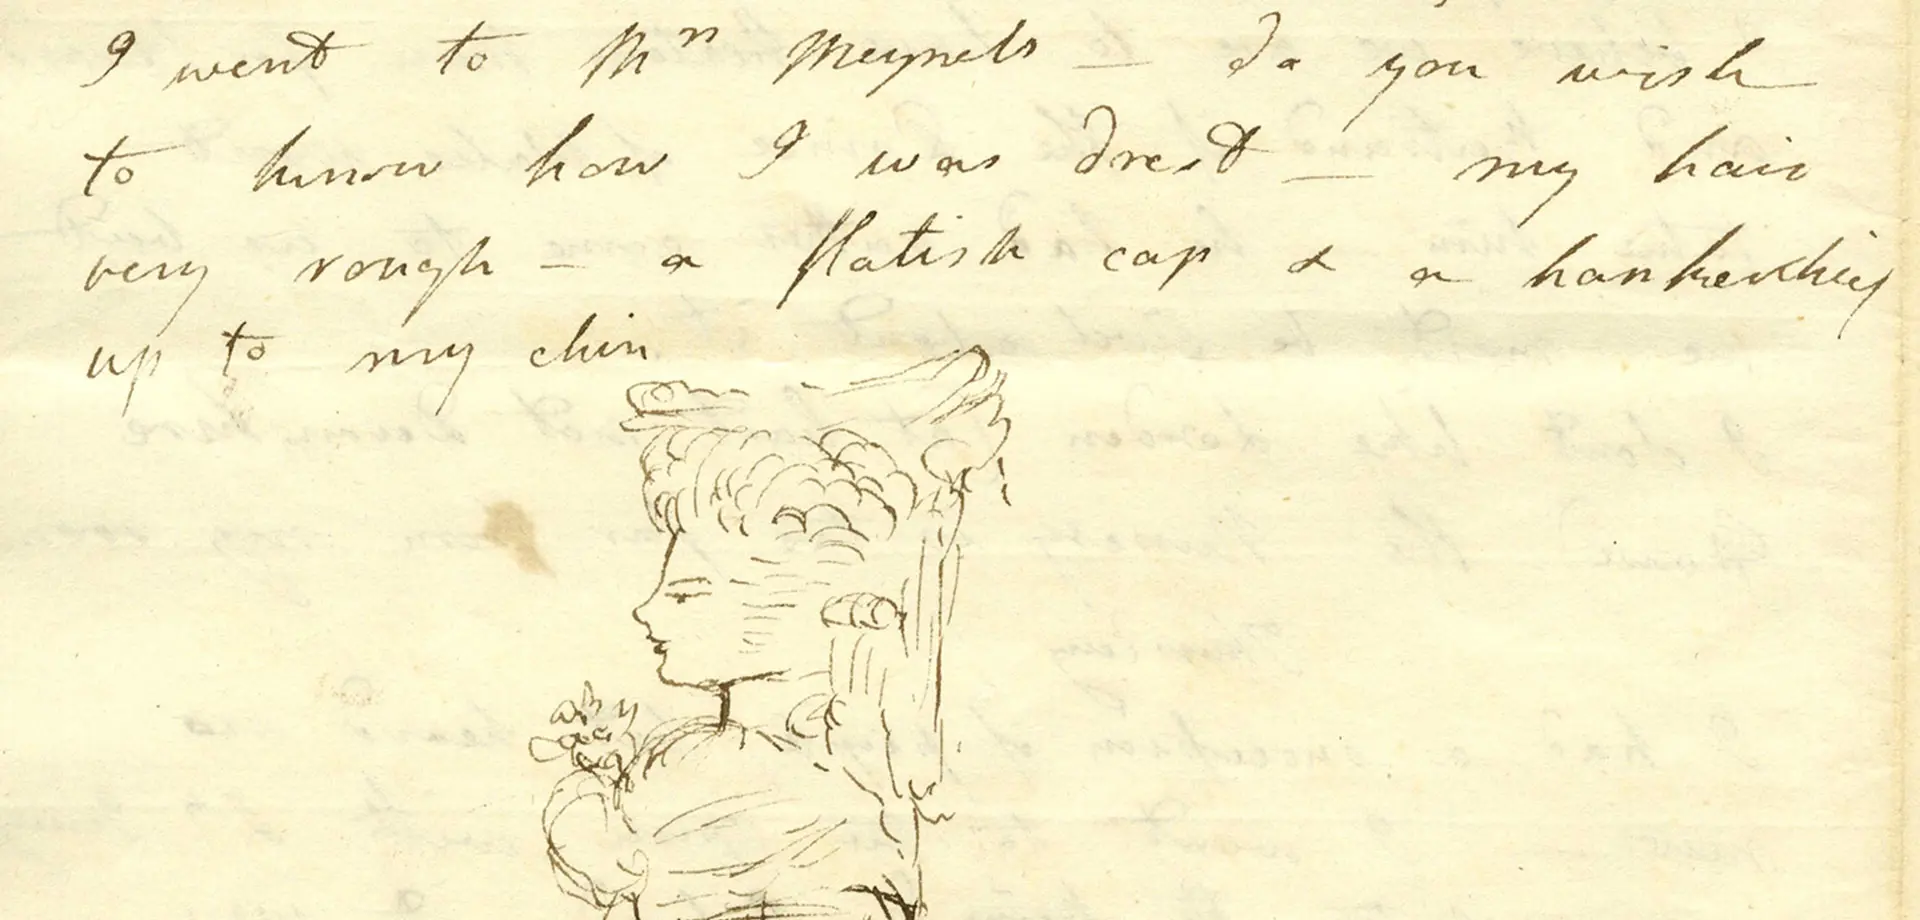 I went to Mrs Meynels — do you wish
to know how I was drest — my hair
very rough — a flatish cap & a hankerchief
up to my chin